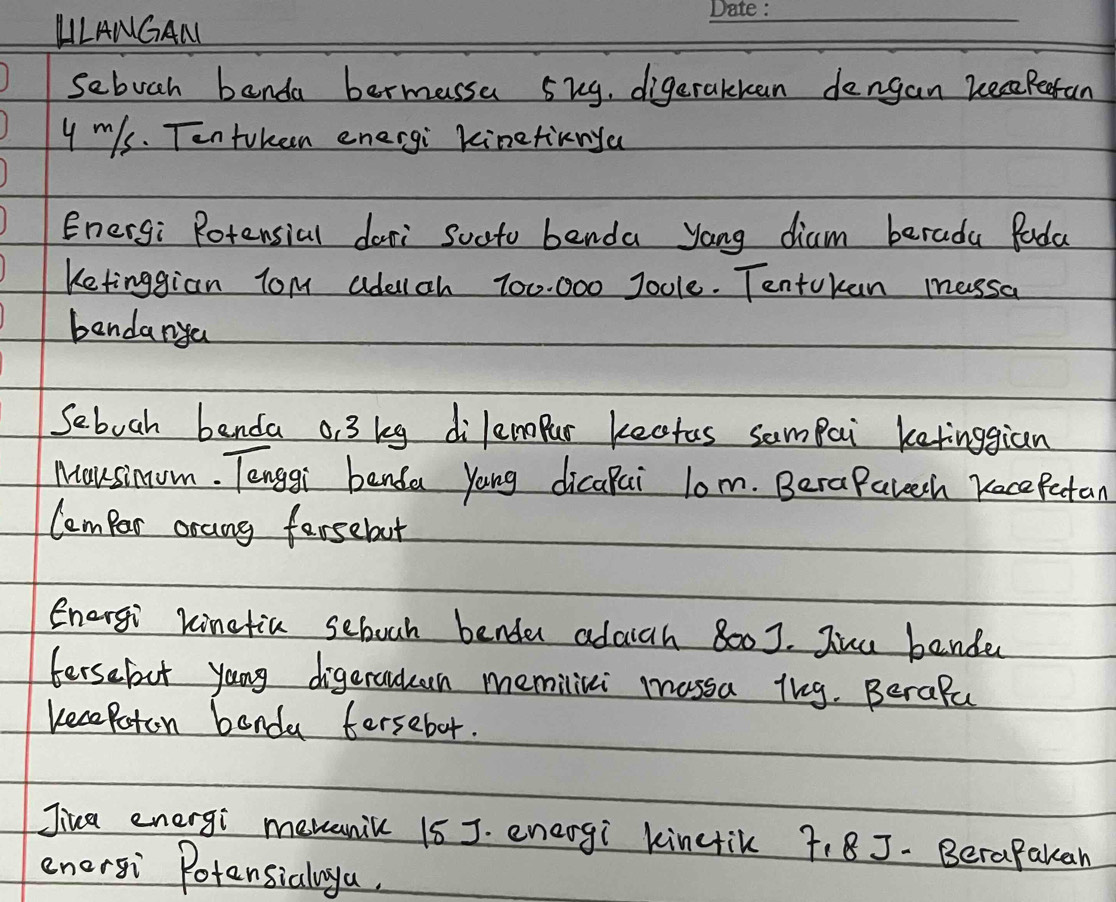 Date :
ULANGAN
Sebuah benda bermassa 5 kg. digerakkan dengan kecepatan
4 m/s. Tentukan energi kinetiknya
Energi Potensial dari suatu benda yang diam berada Pada
ketinggian 10M adalah 100.000 Joule. Tentukan massa
bendanya
Sebuah benda 0,3 kg dilempar keatas sampai ketinggian
Maksimum. Tenggi benda yang dicapai 10 m. Berapakah kecepatan
lempar orang tersebut
Energi kinetik sebuah benda adalah 800 J. Jika benda
tersebut yang digerakkan memiliki massa 1 kg. Berapa
kecepatan benda tersebut.
Jika energi mekanik 15 J. energi kinetik 7,8 J. Berapakah
energi Potensialnya.